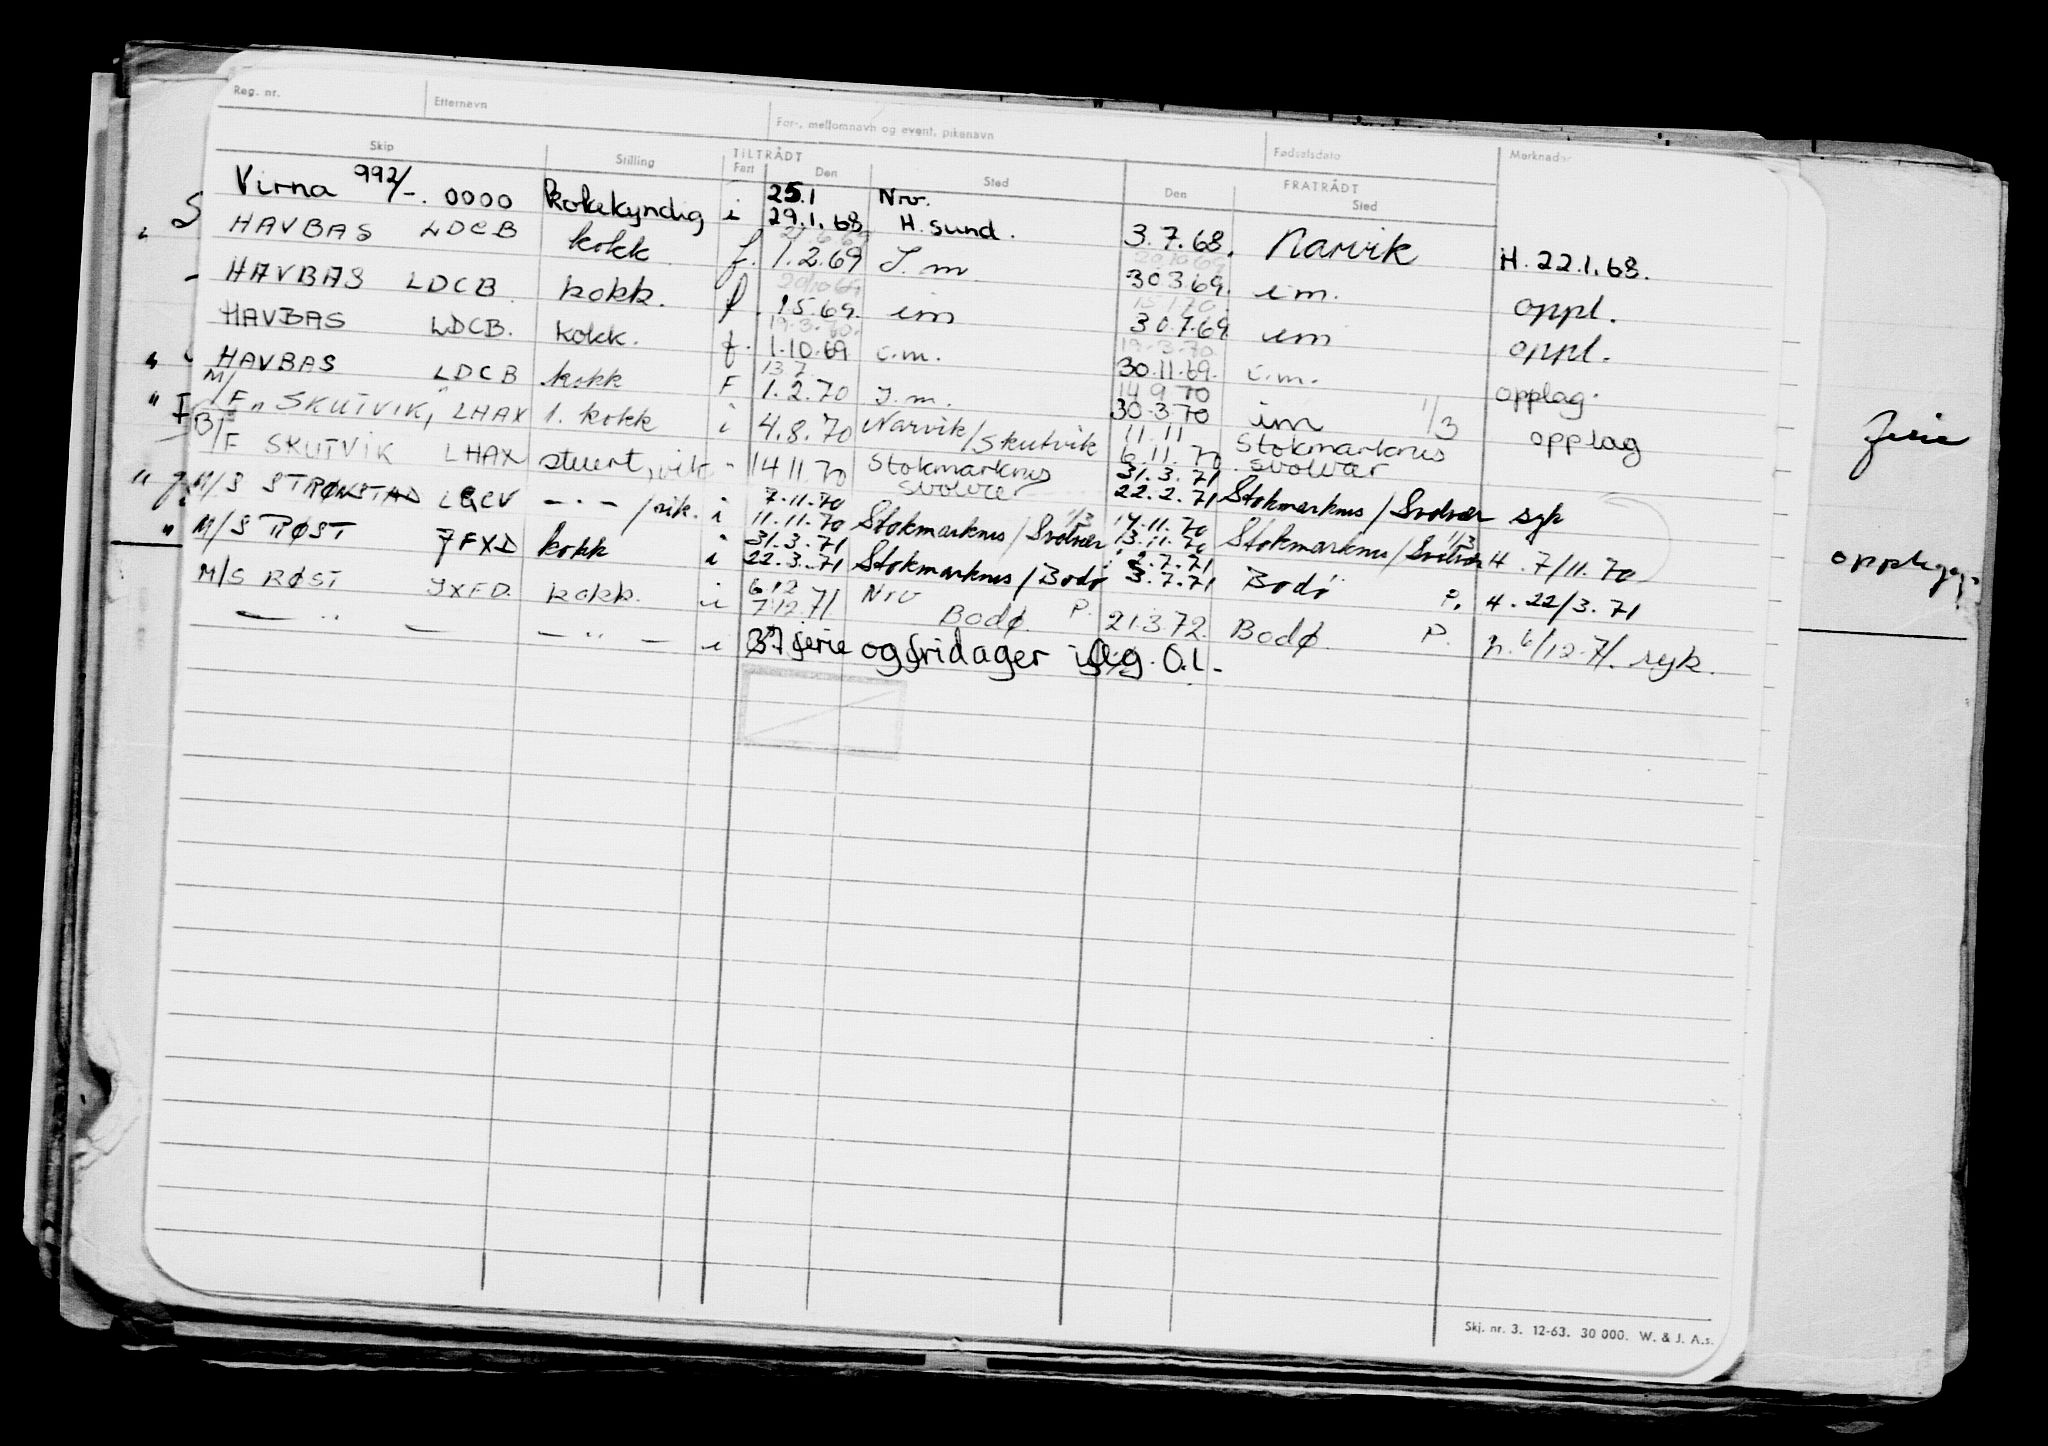 Reg. nr. Etternavn For-, mellomnavn og event. pikenavn Fødselsdato Merknader
Skip Stilling TILTRÅDT Fart Den Sted FRATRÅDT Den Sted
Virna 992/-. 0000 kokekyndig i 25.1 Nrv.
29.1.68 H. sund. 3.7.68. Narvik H. 22.1.68.
HAVBAS LDCB kokk f. 1.2.69 J.m 30.3.69. i.m. oppl.
HAVBAS LDCB kokk. f. 1.5.69. im 30.7.69 im oppl.
HAVBAS LDCB. kokk. f. 1.10.69 i.m. 30.11.69. i.m. opplag.
HAVBAS LDCB kokk F 1.2.70 J.m. 30.3.70 im opplag
M/F " SKUTVIK, LHAX 1. kokk i 4.8.70 Narvik/Skutvik 11.11 Stokmarknes 1/3
6.11.70 Svolvær
B/F SKUTVIK LHAX stuert, vik " 14 11 70 Stokmarknes 31.3.71
Svolvær
M/S STRØNSTAD LQCV — · — /vik. i 7.11.70
22.2.71 Stokmarknes/Svolvær syk
11.11.70 Stokmarknes/Svolvær 1/3 14.11.70
13.11.70 Stokmarknes/Svolvær 1/3 H. 7/11.70
M/S RØST JFXD kokk i 31.3.71
i 22.3.71 Stokmarknes/Bodø 2.7.71
3.7.71 Bodø P. H. 22/3.71
M/S RØST JXFD. kokk. i 6 12 Nrv
7.12.71 Bodø. P. 21.3.72. Bodø. P. h. 6/12.71. syk.
— " — — " — i ferie og fridager iflg. O.l.-
ferie
Skj. nr. 3. 12-63. 30 000. W. & J. A.s.